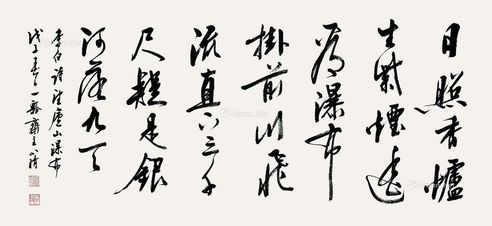 日照香爐
生紫煙遙
看瀑布
掛前川飛
流直下三千
尺疑是銀
河落九天
李白詩望廬山瀑布
戊子